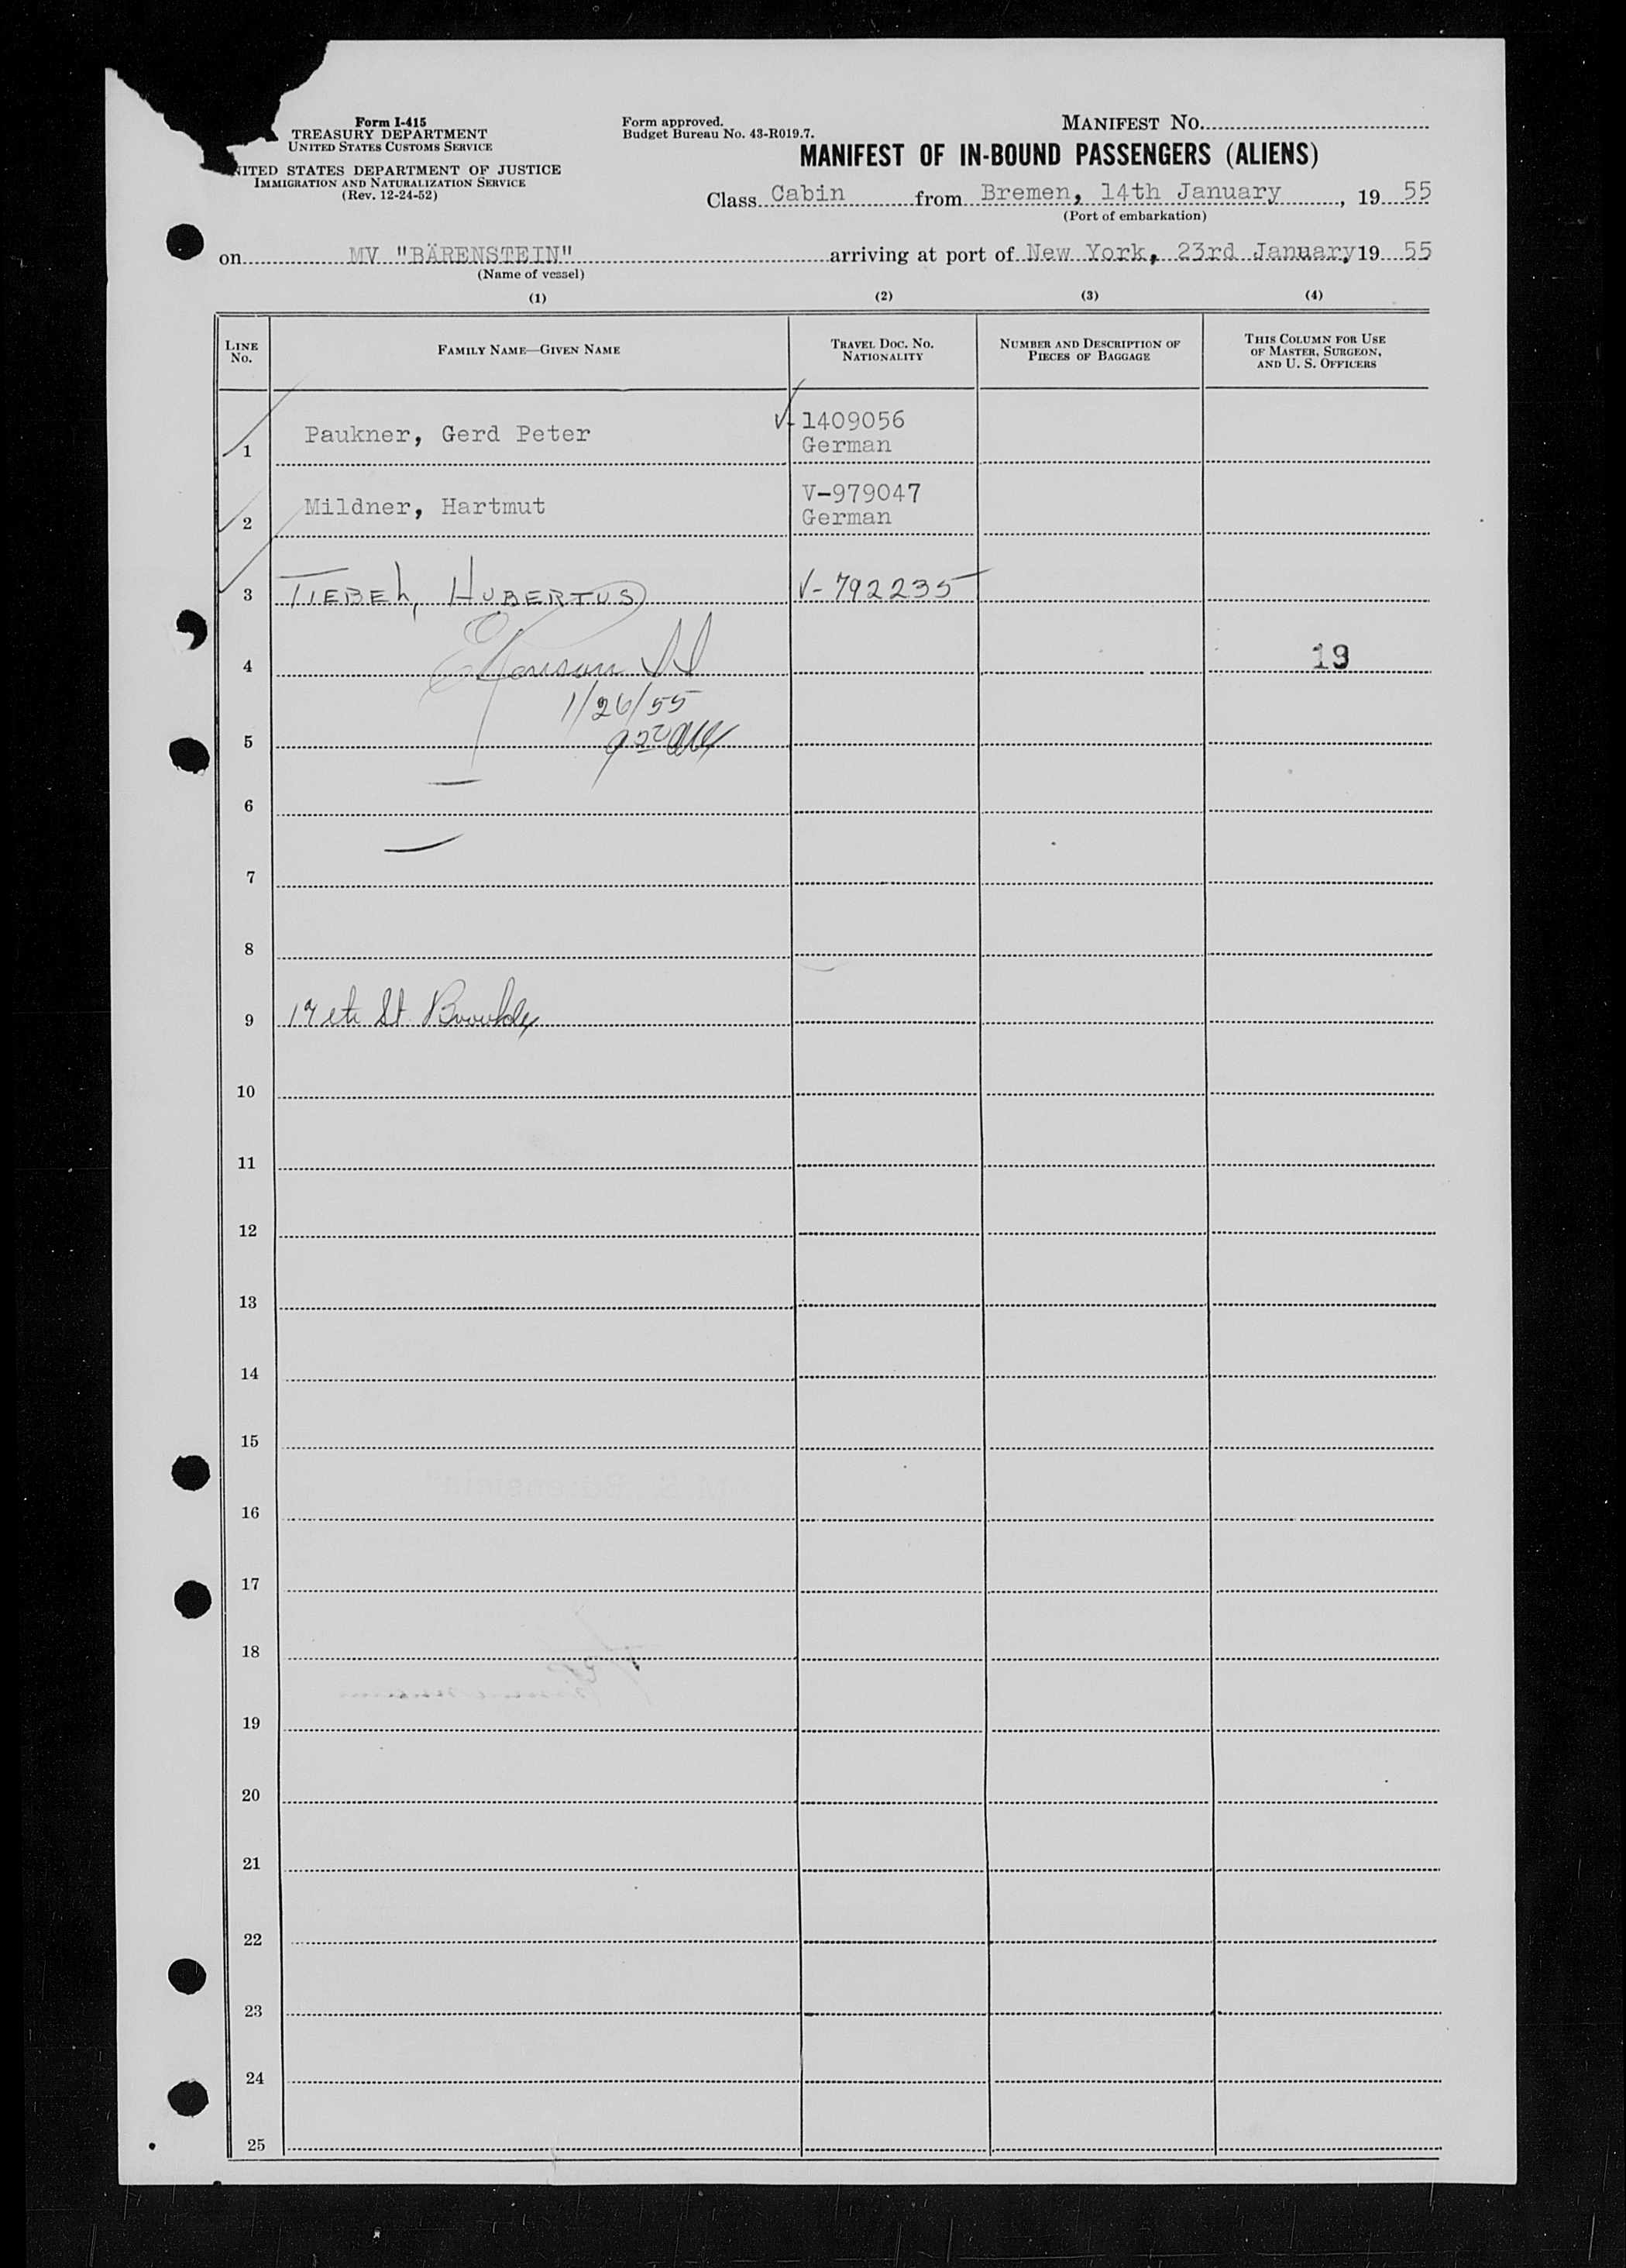 Form I-415
TREASURY DEPARTMENT
UNITED STATES CUSTOMS SERVICE
NITED STATES DEPARTMENT OF JUSTICE
IMMIGRATION AND NATURALIZATION SERVICE
(Rev. 12-24-52)
Form approved.
Budget Bureau No. 43-R019.7.
MANIFEST NO.
MANIFEST OF IN-BOUND PASSENGERS (ALIENS)
Class Cabin from Bremen, 14th January, 19 55
(Port of embarkation)
on MV "BÄRENSTEIN" arriving at port of New York, 23rd January, 19 55
(Name of vessel)
(1) (2) (3) (4)
LINE NO. FAMILY NAME—GIVEN NAME TRAVEL DOC. NO. NATIONALITY NUMBER AND DESCRIPTION OF PIECES OF BAGGAGE THIS COLUMN FOR USE OF MASTER, SURGEON, AND U. S. OFFICERS
1 Paukner, Gerd Peter V-1409056
German
2 Mildner, Hartmut V-979047
German
3 TIEBEL, HUBERTUS V-792235
4 19
1/26/55
5
6
7
8
9 St
10
11
12
13
14
15
16
17
18
19
20
21
22
23
24
25